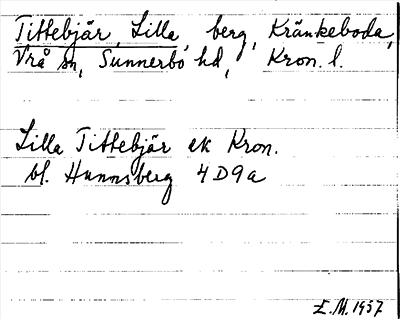 Tittebjär, Lilla, berg, Kränkeboda,
Vrå sn, Sunnerbo hd, Kron. l.
Lilla Tittebjär ek Kron.
bl. Hunnsberg 4D9a
E.M. 1957